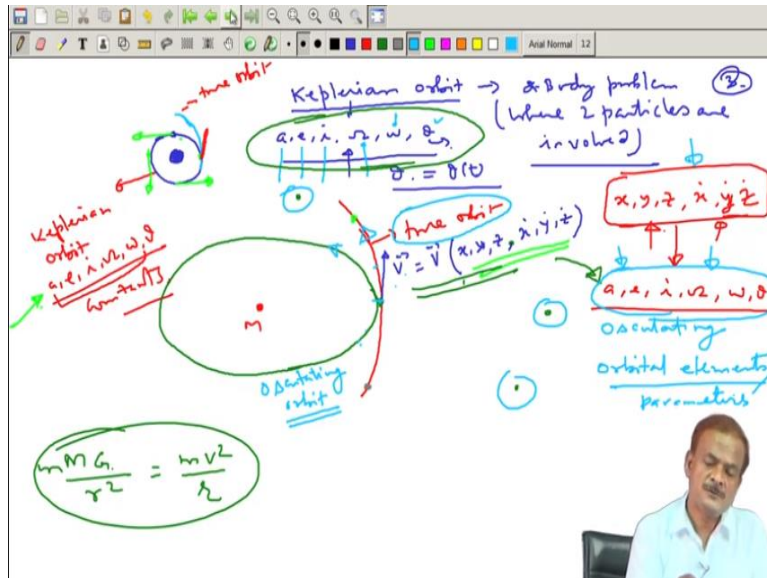 Arial Normal 12
true orbit
Keplerian orbit → 2-Body problem
3.
(where 2 particles are
involved)
a, e, i, Ω, ω, θ
θ = θ(t)
Keplerian
orbit
a, e, i, Ω, ω, θ
constants
true orbit
V⃗ = V⃗ (x, y, z, ẋ, ẏ, ż)
x, y, z, ẋ, ẏ, ż
a, e, i, Ω, ω, θ
osculating
orbital elements
parameters
M
osculating
orbit
mMG/r² = mv²/r